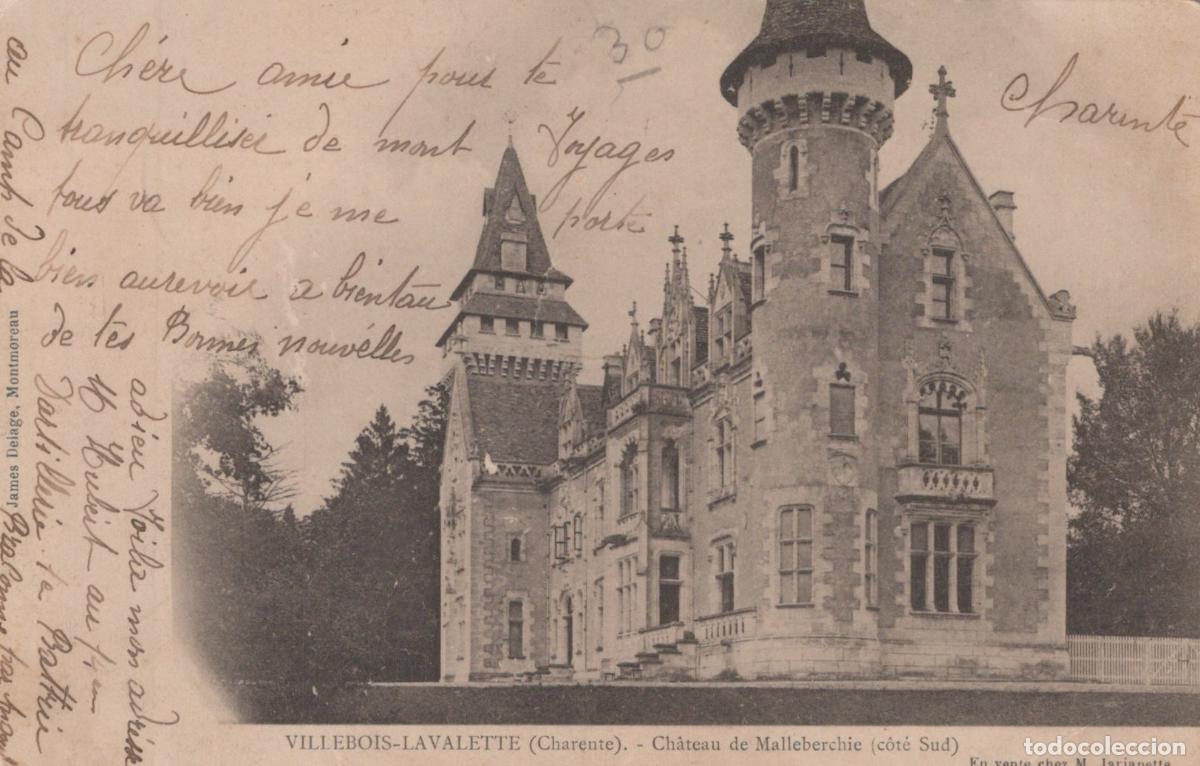 Chére amie pour te
tranquilliser de mont Voyages
tous va bien je me porte
bien aurevoir a bientau
de tes Bonnes nouvélles
adieu Voila mon adrésse
Hubert au
Dartillerie Battrie
au Camp de la
Charente
30
James Delage, Montmoreau
VILLEBOIS-LAVALETTE (Charente). - Château de Malleberchie (côté Sud)
En vente chez M. Jarjanette
todocoleccion